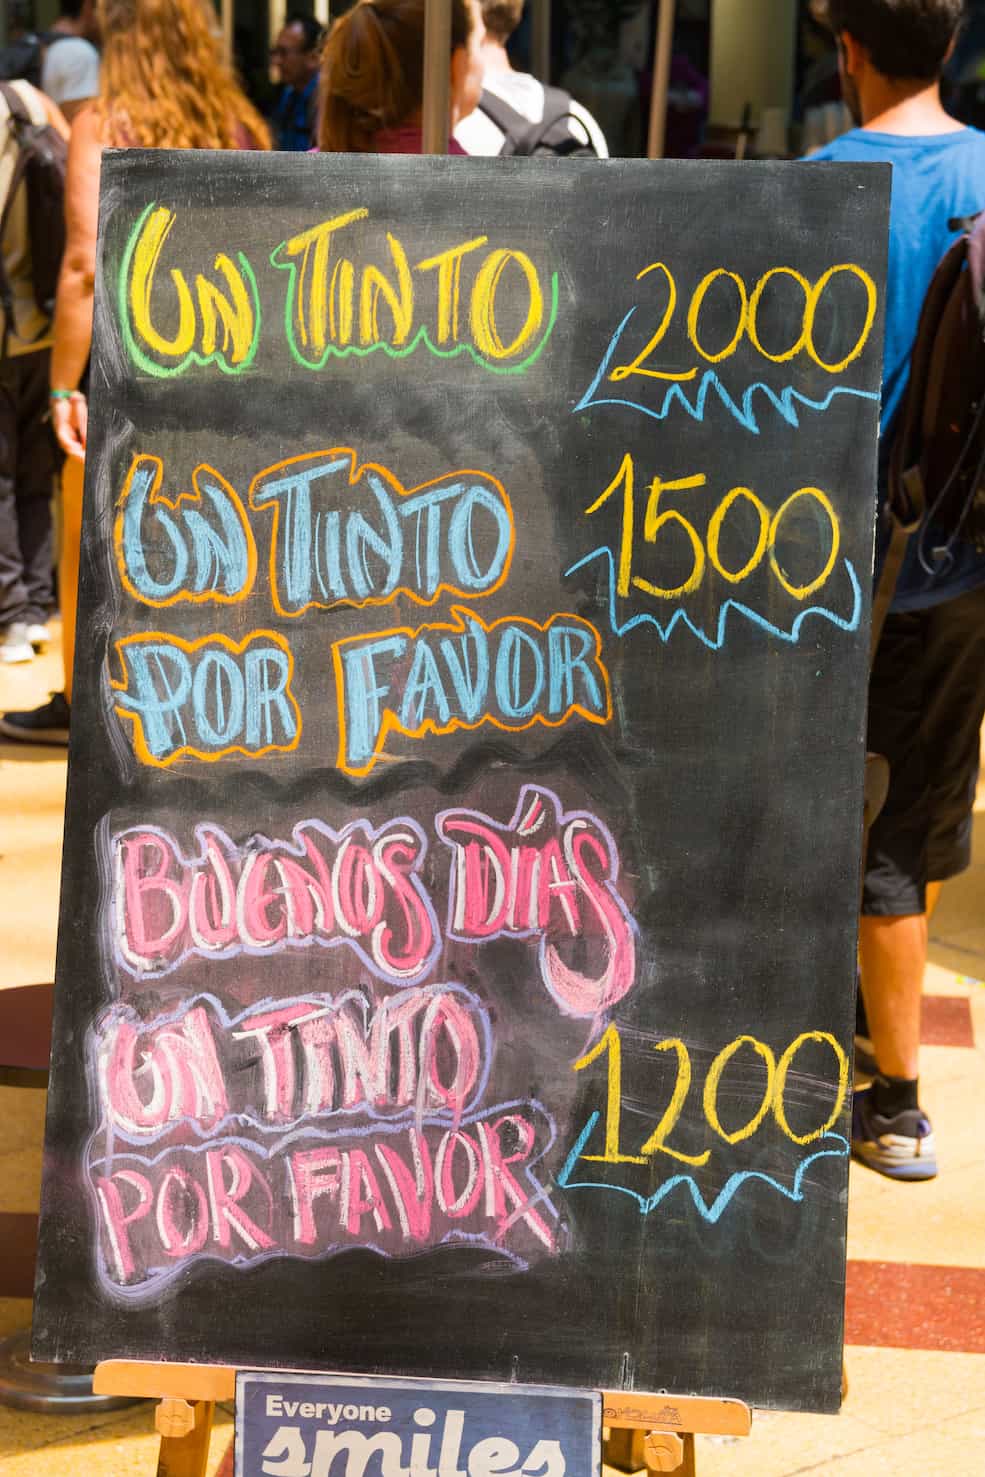 UN TINTO 2000
UN TINTO 1500
POR FAVOR
BUENOS DÍAS
UN TINTO
POR FAVOR 1200
Everyone
smiles